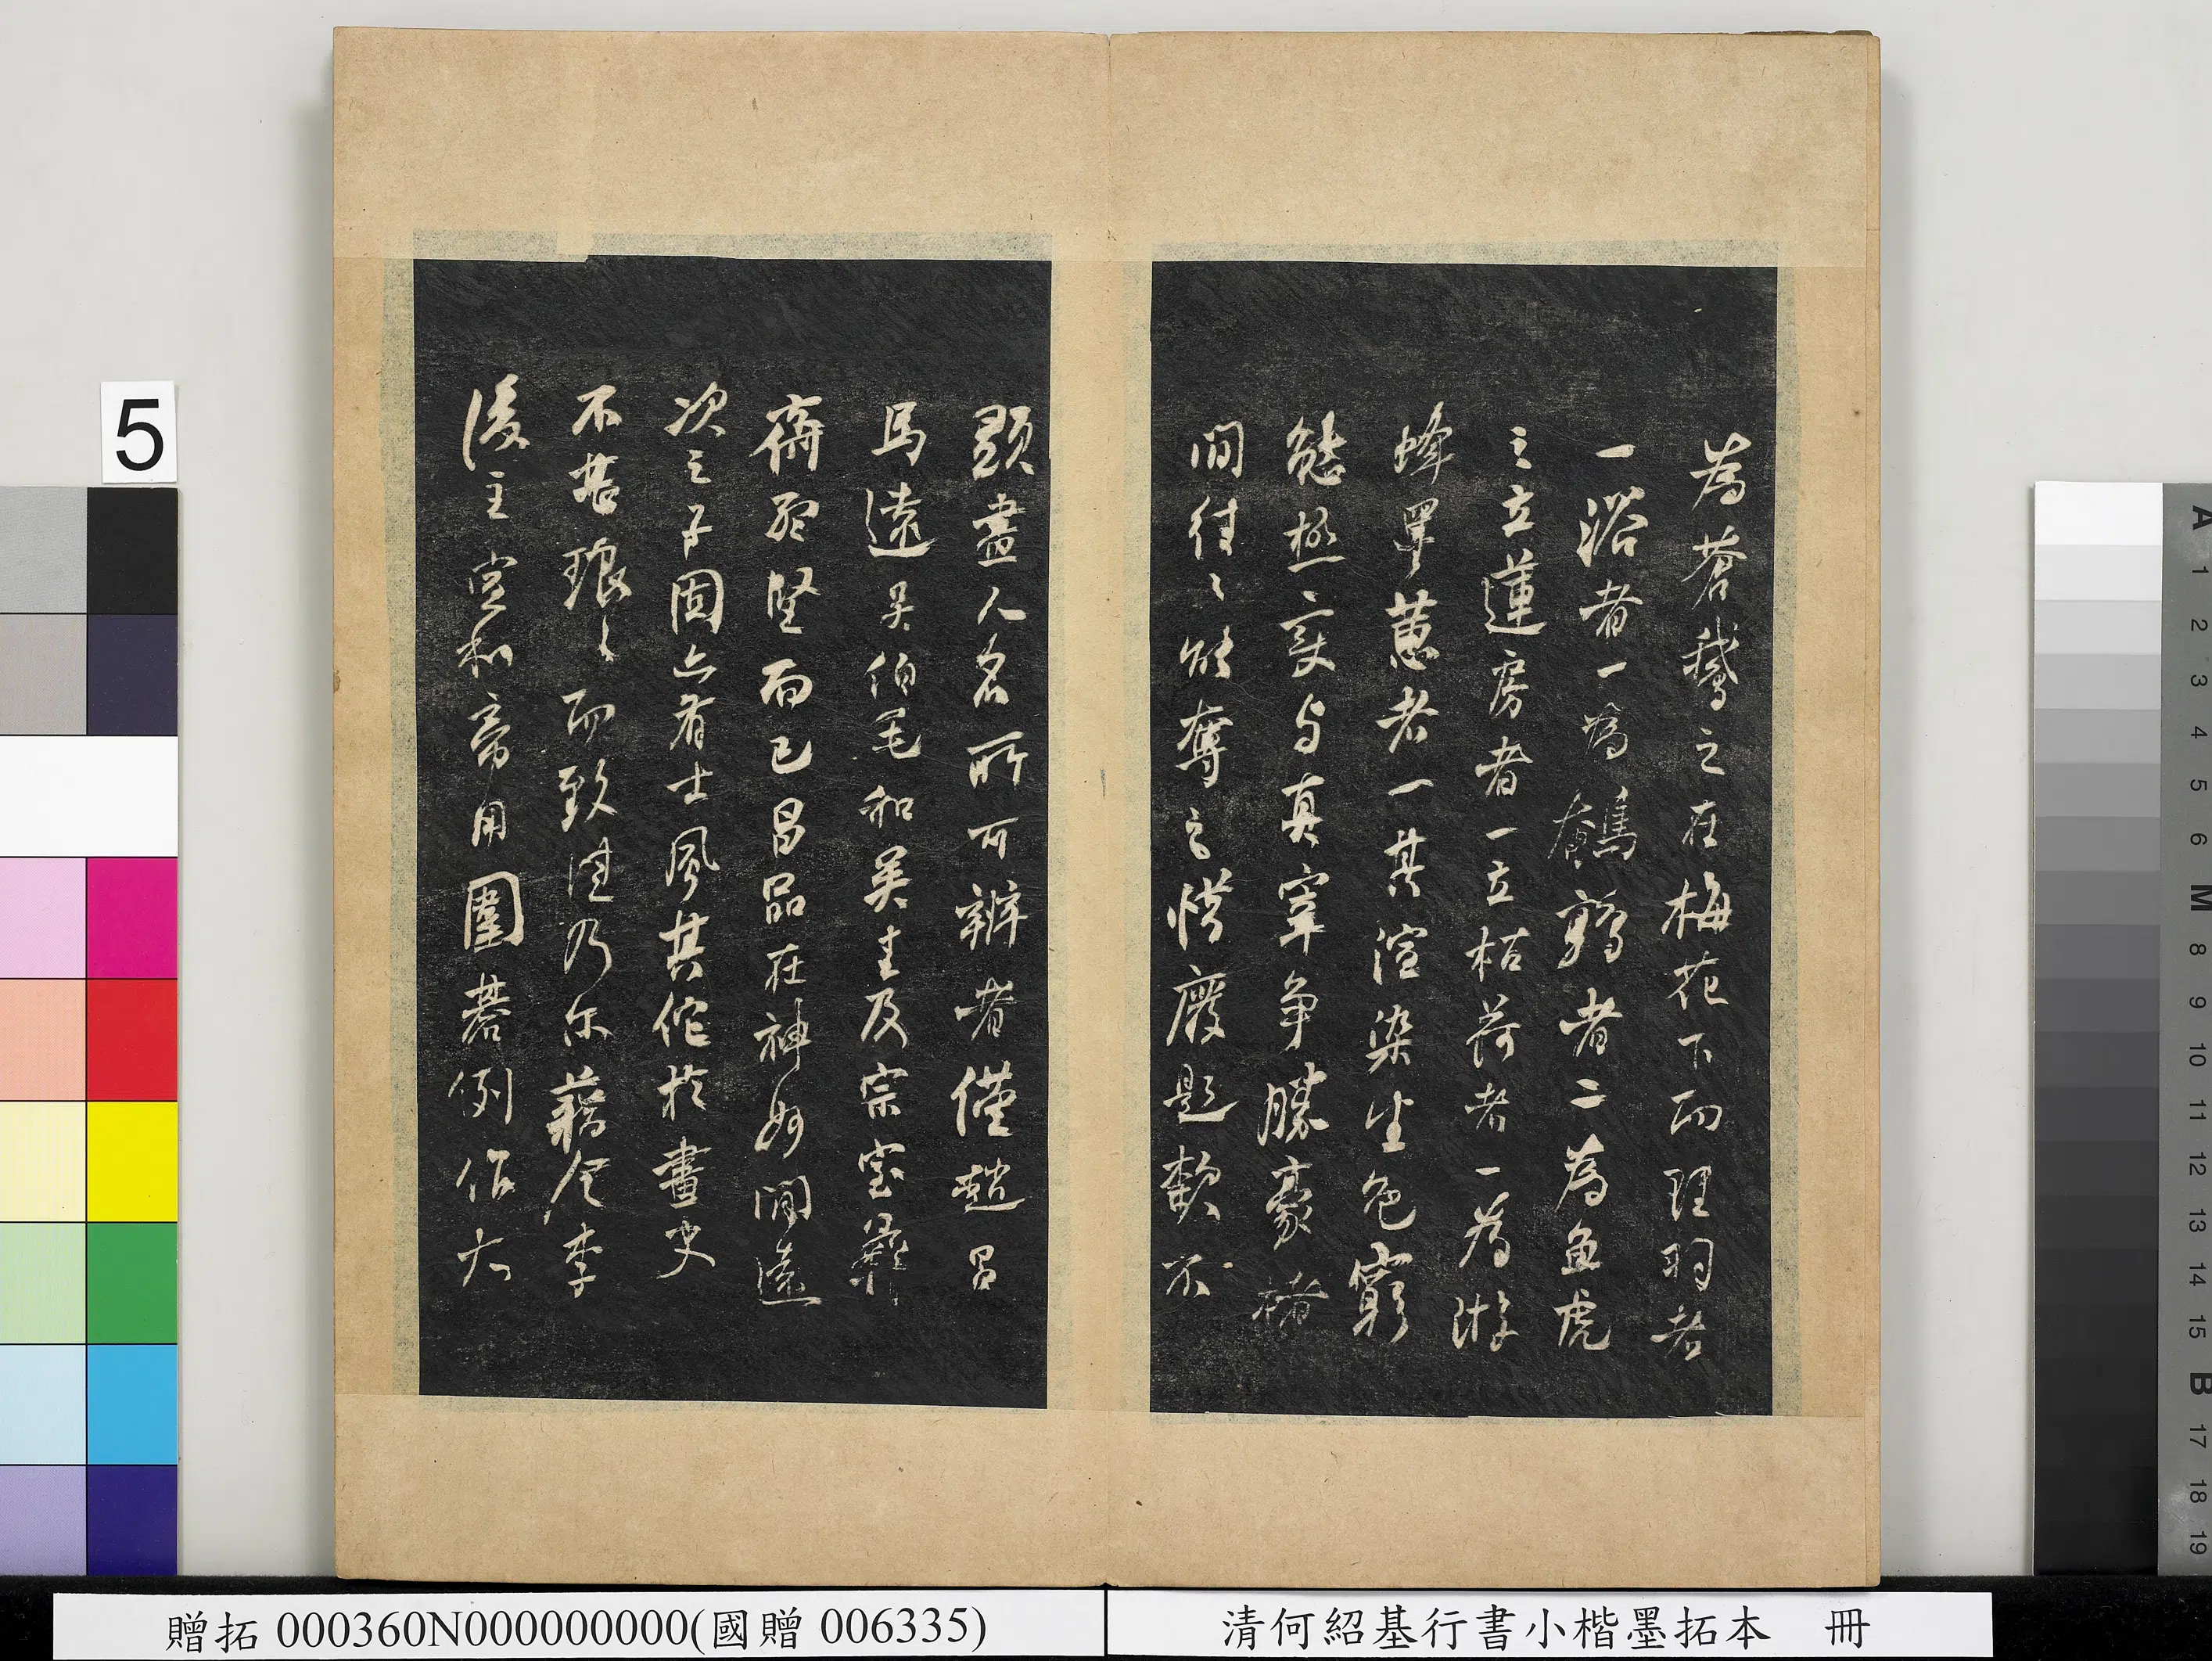 為蒼鵝之在梅花下而理羽者
一浴者一為鵪鶉者二為魚虎
之立蓮房者一立枯荷者一為游
蜂罩蕙者一其渲染生色窮
態極變与真宰爭勝豪楮
間往々欲奪之惜廢題款不
顯盡人名所可辨者僅趙昌
馬遠吳伯毛和吳主及宗室彝
齋孟堅而已昌品在神妙間遠
次之子固亦有士風其佗於畫史
不甚琅々而致進乃尔藉令李
後主宣和帝用圍碁例作大
5
贈拓 000360N000000000(國贈 006335)
清何紹基行書小楷墨拓本 冊
A 1 2 3 4 5 6 M 8 9 10 11 12 13 14 15 B 17 18 19